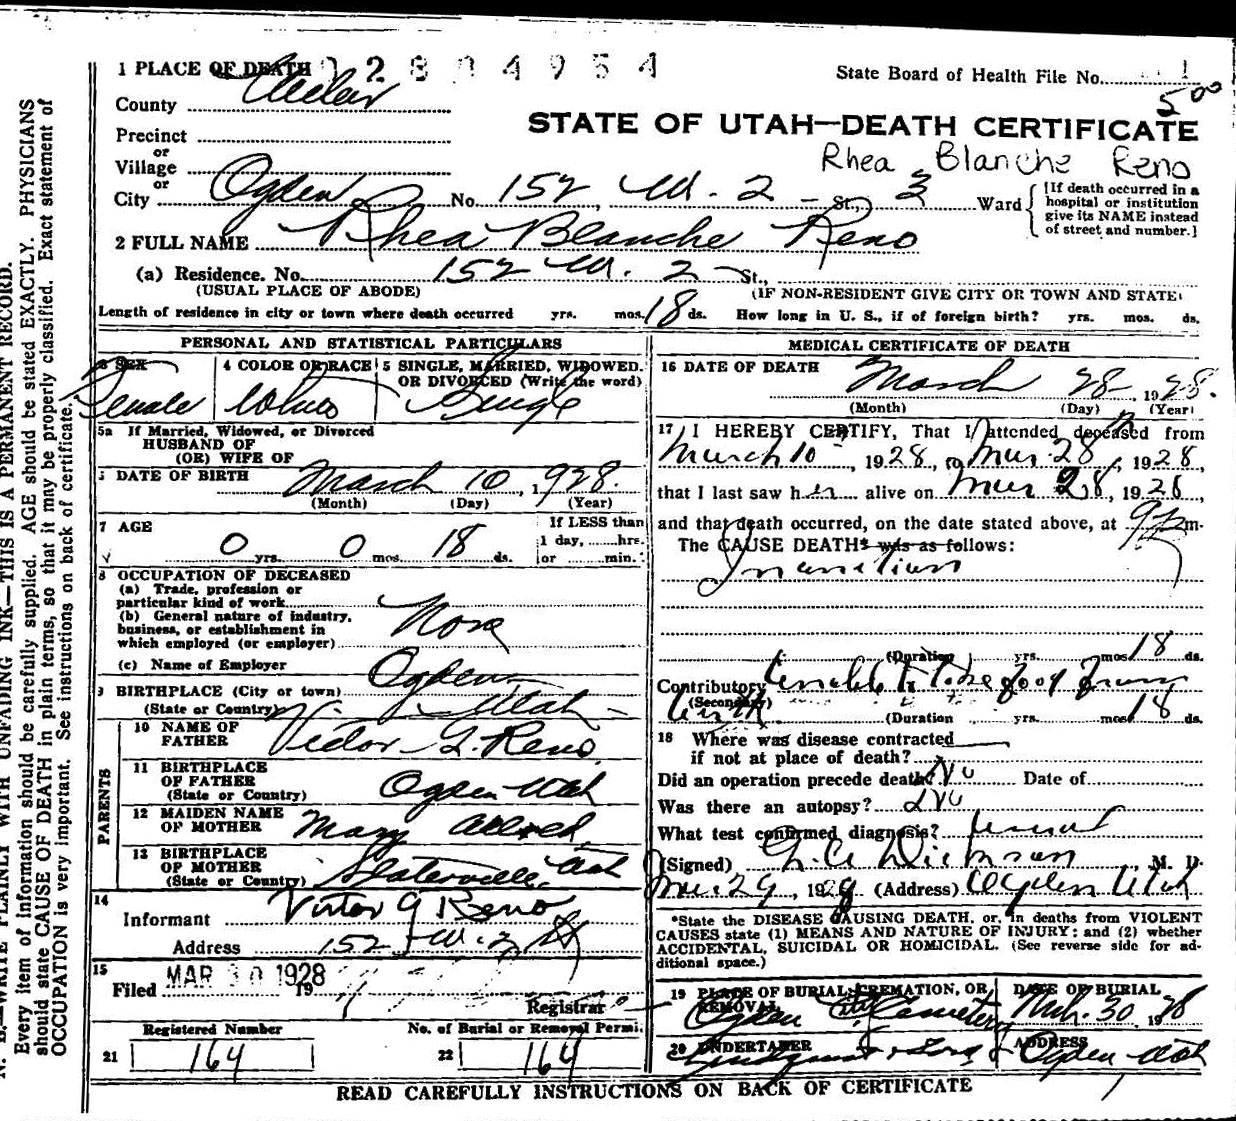 N. B.—WRITE PLAINLY WITH UNFADING INK—THIS IS A PERMANENT RECORD.
Every item of information should be carefully supplied. AGE should be stated EXACTLY. PHYSICIANS
should state CAUSE OF DEATH in plain terms, so that it may be properly classified. Exact statement of
OCCUPATION is very important. See instructions on back of certificate.
1 PLACE OF DEATH
2804954
State Board of Health File No. 1
County
500
STATE OF UTAH—DEATH CERTIFICATE
Precinct
or
Village
Rhea Blanche Reno
or
City Ogden No. 152 W. 2 - St., 3 Ward
[If death occurred in a
hospital or institution
give its NAME instead
of street and number.]
2 FULL NAME Rhea Blanche Reno
(a) Residence. No. 152 W. 2 St.,
(USUAL PLACE OF ABODE) (IF NON-RESIDENT GIVE CITY OR TOWN AND STATE)
Length of residence in city or town where death occurred yrs. mos. 18 ds. How long in U. S., if of foreign birth? yrs. mos. ds.
PERSONAL AND STATISTICAL PARTICULARS
3 SEX Female
4 COLOR OR RACE White
5 SINGLE, MARRIED, WIDOWED,
OR DIVORCED (Write the word)
Single
5a If Married, Widowed, or Divorced
HUSBAND OF
(OR) WIFE OF
DATE OF BIRTH March 10, 1928.
(Month) (Day) (Year)
7 AGE
0 yrs. 0 mos. 18 ds.
If LESS than
1 day, ......hrs.
or ......min.
8 OCCUPATION OF DECEASED
(a) Trade, profession or
particular kind of work
(b) General nature of industry,
business, or establishment in
which employed (or employer)
None
(c) Name of Employer
9 BIRTHPLACE (City or town) Ogden
(State or Country) Utah
PARENTS
10 NAME OF
FATHER Victor G. Reno
11 BIRTHPLACE
OF FATHER
(State or Country) Ogden Utah
12 MAIDEN NAME
OF MOTHER Mary Allred
13 BIRTHPLACE
OF MOTHER
(State or Country) Slaterville, Utah
14
Informant Victor G Reno
Address 152 W. 2 St
15
Filed MAR 30 1928 19
Registrar
Registered Number
21 164
No. of Burial or Removal Permi.
22 164
MEDICAL CERTIFICATE OF DEATH
16 DATE OF DEATH
March 28, 1928.
(Month) (Day) (Year)
17 I HEREBY CERTIFY, That I attended deceased from
March 10, 1928, to Mar. 28, 1928,
that I last saw her alive on Mar 28, 1928
and that death occurred, on the date stated above, at m.
The CAUSE DEATH* was as follows:
Inanition
(Duration yrs. mos 18 ds.
Contributory Unable to take food from
(Secondary) birth
(Duration yrs. mos 18 ds.
18 Where was disease contracted
if not at place of death?
Did an operation precede death? No Date of
Was there an autopsy? No
What test confirmed diagnosis?
(Signed) M. D.
Mar. 29, 1928 (Address) Ogden Utah
*State the DISEASE CAUSING DEATH, or, in deaths from VIOLENT
CAUSES state (1) MEANS AND NATURE OF INJURY; and (2) whether
ACCIDENTAL, SUICIDAL OR HOMICIDAL. (See reverse side for ad-
ditional space.)
19 PLACE OF BURIAL, CREMATION, OR
REMOVAL
Ogden City Cemetery
DATE OF BURIAL
Mch. 30, 1928
20 UNDERTAKER
& Sons
ADDRESS
Ogden Utah
READ CAREFULLY INSTRUCTIONS ON BACK OF CERTIFICATE